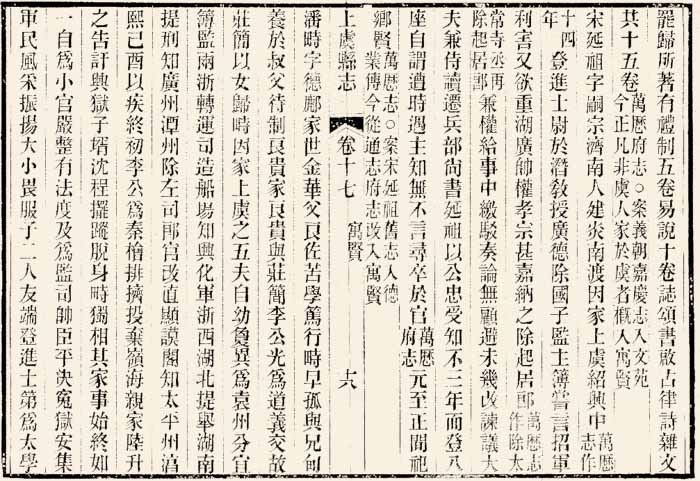 罷歸所著有禮制五卷易說十卷誌頌書啟古律詩雜文
共十五卷萬歷府志○案義朝嘉慶志入文苑今正凡非虞人家於虞者槪入寓賢
宋延祖字嗣宗濟南人建炎南渡因家上虞紹興中萬歷志作
十四年登進士尉於潛敎授廣德除國子監主簿嘗言招軍
利害又欲重湖廣帥權孝宗甚嘉納之除起居郎萬歷志作除太
常寺丞再除起居郎兼權給事中繳駁奏論無顧避未幾改諫議大
夫兼侍讀遷兵部尚書延祖以公忠受知不三年而登八
座自謂遭時遇主知無不言尋卒於官萬歷府志元至正間祀
鄉賢萬歷志○案宋延祖舊志入德業傳今從通志府志改入寓賢
上虞縣志 卷十七 寓賢 六
潘時字德鄜家世金華父良佐苦學篤行時早孤與兄㽦
養於叔父待制良貴家良貴與莊簡李公光爲道義交故
莊簡以女歸時因家上虞之五夫自幼敻異爲袁州分宜
簿監兩浙轉運司造船場知興化軍浙西湖北提舉湖南
提刑知廣州潭州除左司郎官改直顯謨閣知太平州湻
熙己酉以疾終初李公爲秦檜排擠投棄嶺海親家陸升
之告訐興獄子壻沈程擺躐脫身時獨相其家事始終如
一自爲小官嚴整有法度及爲監司帥臣平決寃獄安集
軍民風采振揚大小畏服子二人友端登進士第爲太學